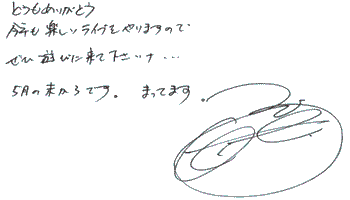 どうもありがとう
今年も楽しいライブをやりますので
ぜひ遊びに来て下さいナ…
5月の末からです。 まってます。